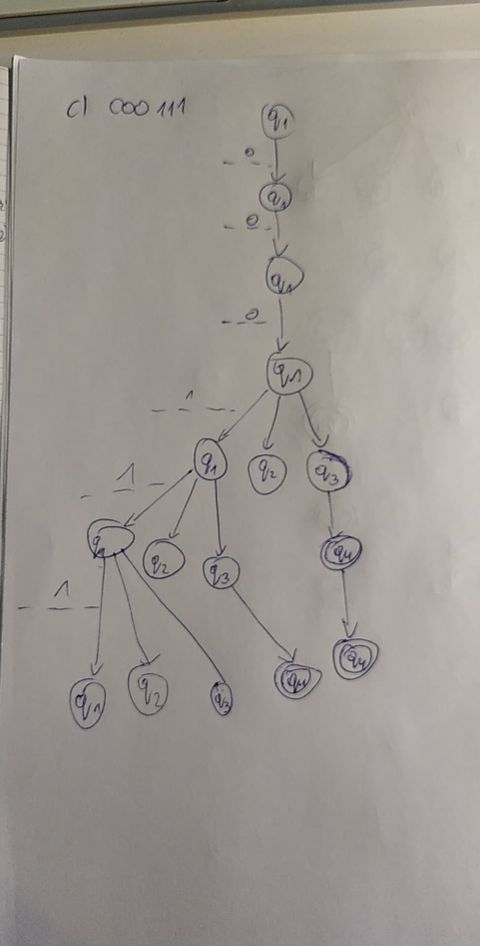 c) 000111
q1
0
q1
0
q1
0
q1
1
q1 q2 q3
1
q1 q2 q3 q4
1
q1 q2 q3 q4 q4